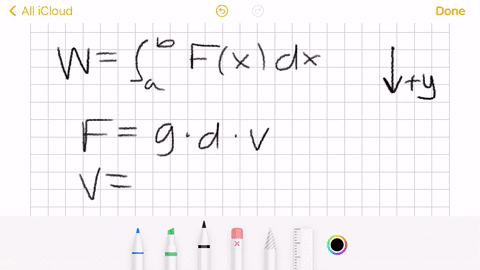 All iCloud
Done
W = ∫_a^b F(x) dx
↓+y
F = g · d · v
V =